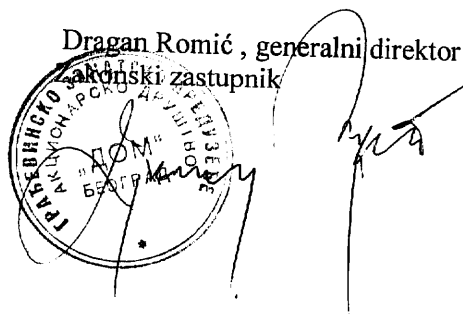 Dragan Romić , generalni direktor
Zakonski zastupnik
ГРАЂЕВИНСКО ЗАНАТСКО ПРЕДУЗЕЋЕ
АКЦИОНАРСКО ДРУШТВО
„ДОМ“
БЕОГРАД